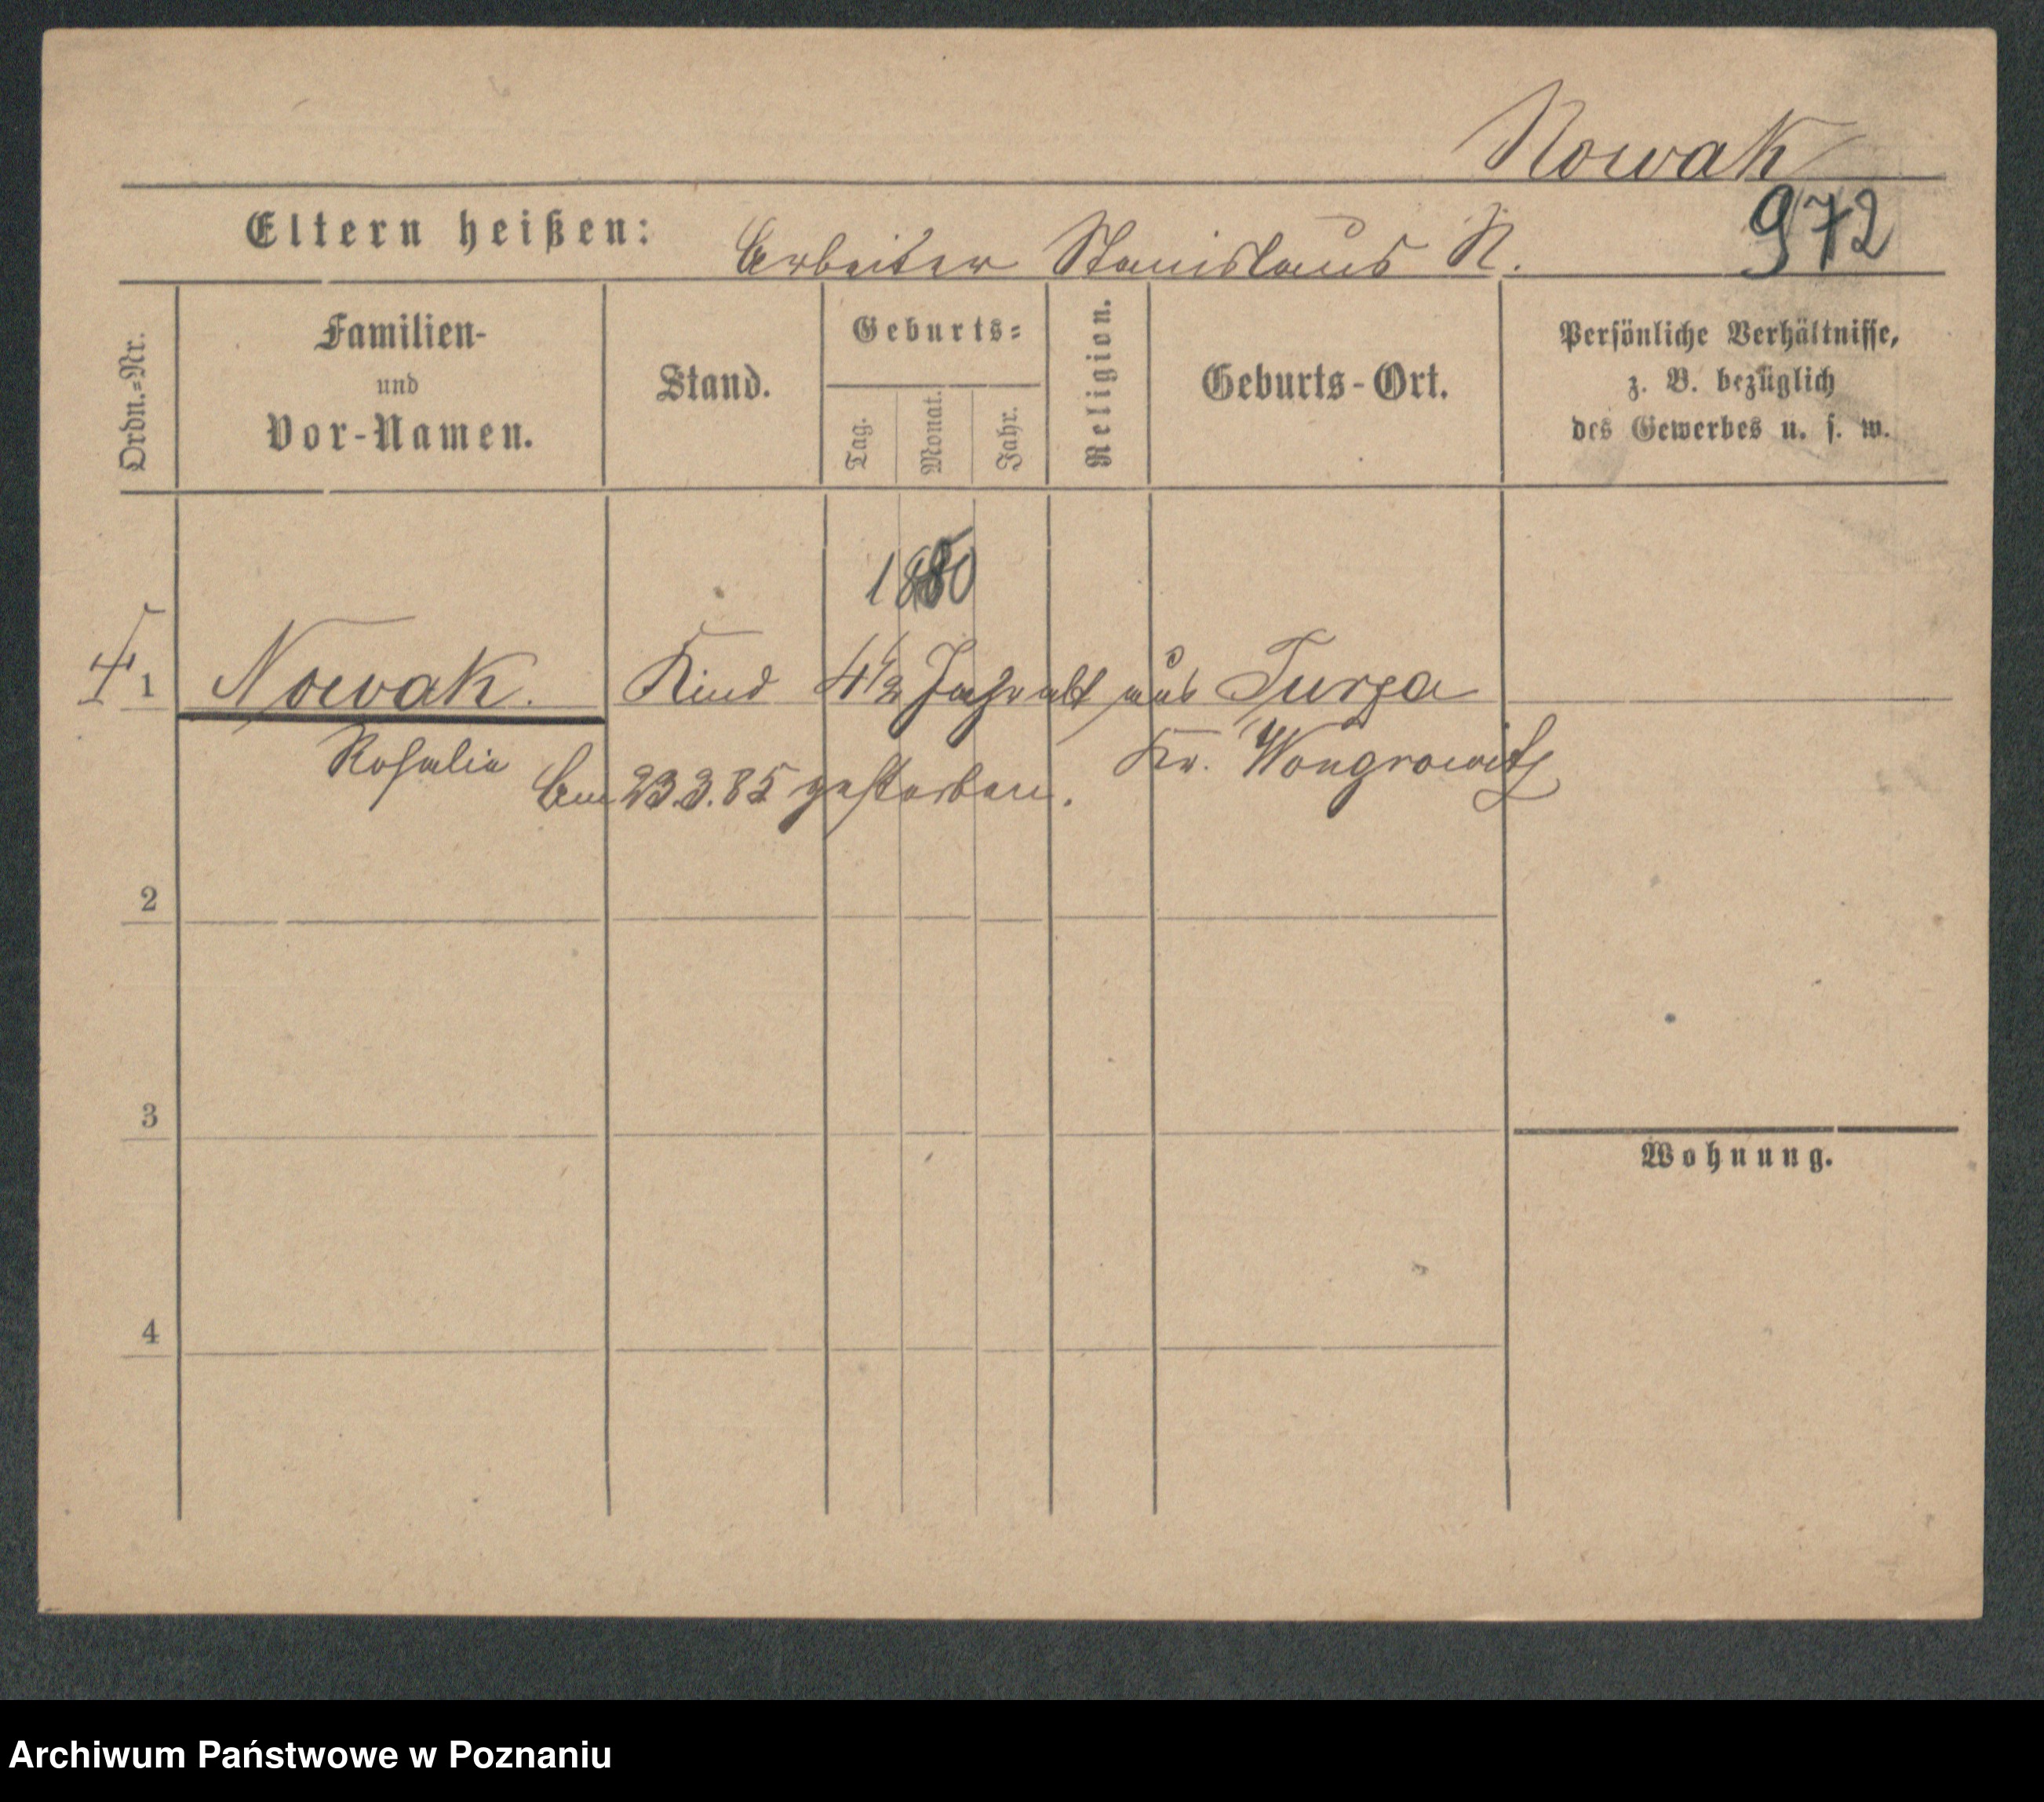 Nowak
972
Eltern heißen: Arbeiter Stanislaus N.
Ordn.=Nr.
Familien-
und
Vor-Namen.
Stand.
Geburts=
Tag.
Monat.
Jahr.
Religion.
Geburts-Ort.
Persönliche Verhältnisse,
z. B. bezüglich
des Gewerbes u. s. w.
1880
1 Nowak. Kind 4 1/2 Jahr alt aus Turza
Rosalie
Kr. Wongrowitz
Am 23.3.85 gestorben.
2
3
Wohnung.
4
Archiwum Państwowe w Poznaniu